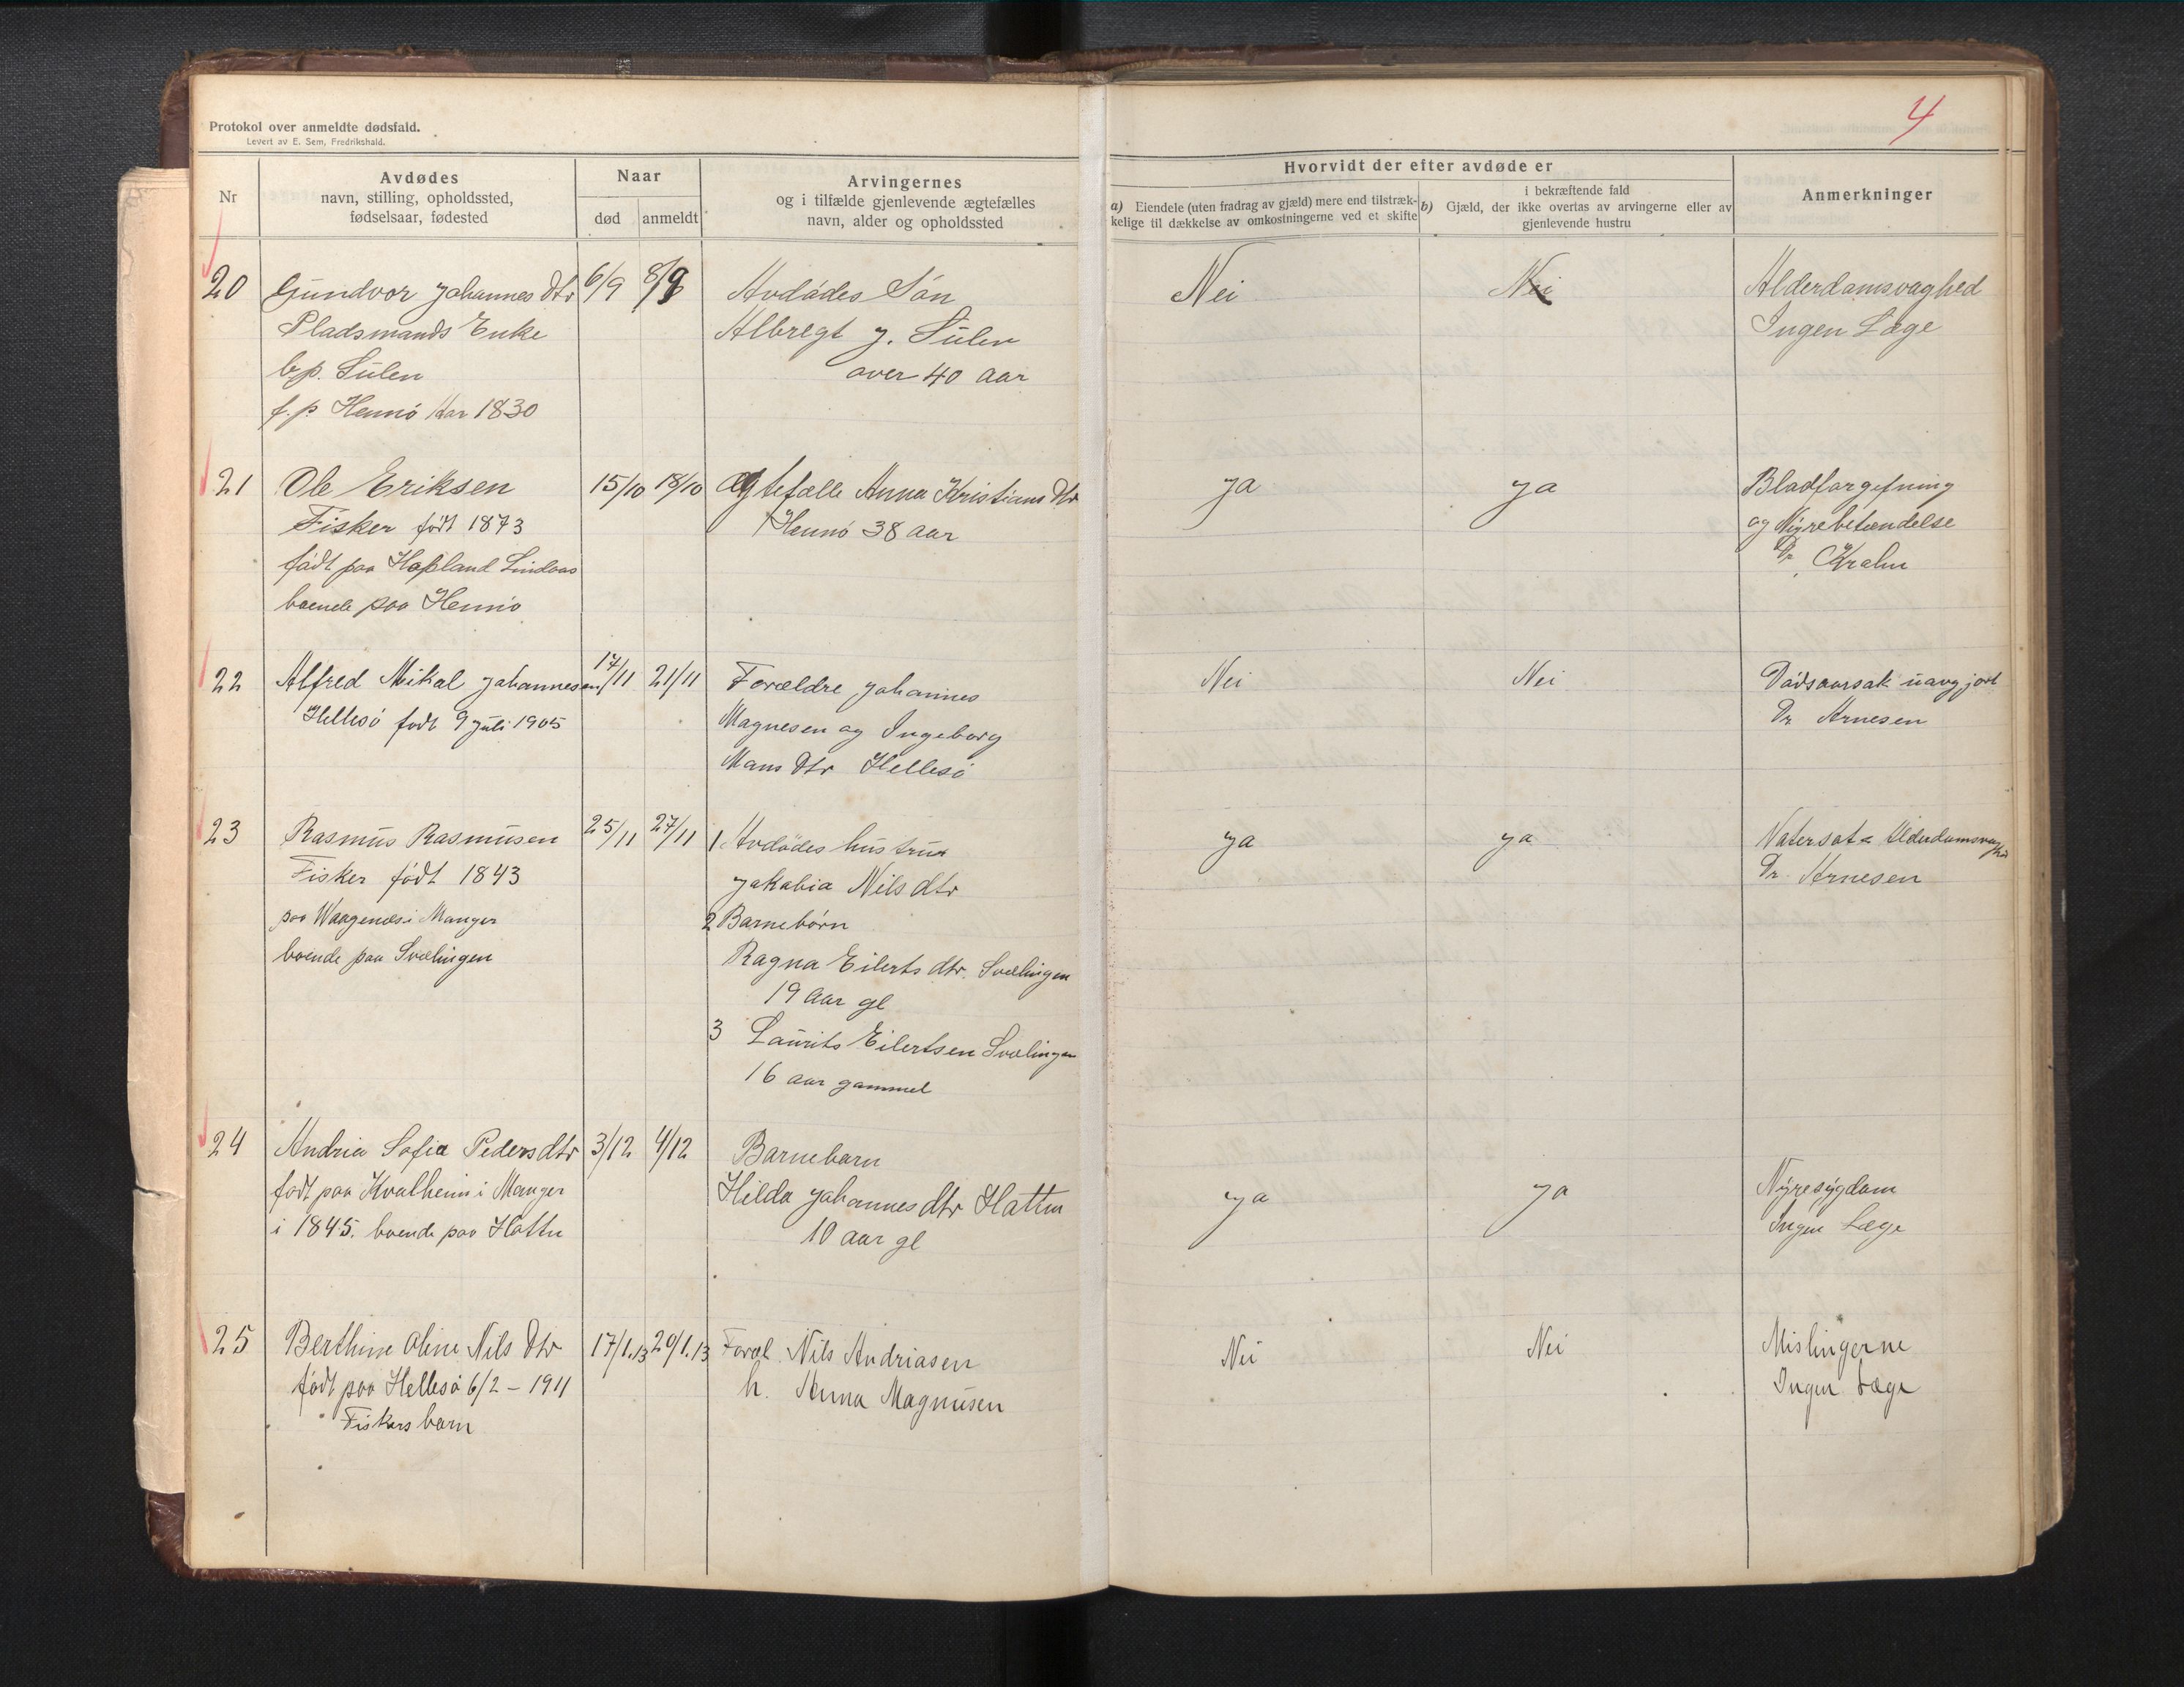 Protokol over anmeldte dødsfald.
Levert av E. Sem, Fredrikshald.
4
Nr
Avdødes
navn, stilling, opholdssted,
fødselsaar, fødested
Naar
død anmeldt
Arvingernes
og i tilfælde gjenlevende ægtefælles
navn, alder og opholdssted
Hvorvidt der efter avdøde er
a) Eiendele (uten fradrag av gjæld) mere end tilstræk-
kelige til dækkelse av omkostningerne ved et skifte
i bekræftende fald
b) Gjæld, der ikke overtas av arvingerne eller av
gjenlevende hustru
Anmerkninger
20 Gundvor Johannes Dtr 6/9 8/9 Avdödes Sön Nei Nei Alderdomsvaghed
Pladsmands Enke Albregt J. Sulen Ingen Læge
b.p. Sulen over 40 aar
f.p. Hennö Aar 1830
21 Ole Eriksen 15/10 18/10 Ægtefælle Anna Kristians Dtr ja ja Blodforgifning
Fisker födt 1873 Hennö 38 aar og Nyrebetændelse
födt paa Hopland Lindaas Dr Krahn
boende paa Hennö
22 Alfred Mikal Johannesen 17/11 21/11 Forældre Johannes Nei Nei Dödsaarsak uavgjort
Hellesö födt 9 Juli 1905 Magnesen og Ingeborg Dr Arnesen
Mons Dtr Hellesö
23 Rasmus Rasmusen 25/11 27/11 1 Avdödes hustrue ja ja Alderdomsvaghed
Fisker födt 1843 Jakobia Nils dtr Dr. Arnesen
paa Waagenæs i Manger 2 Barnebörn
boende paa Svælingen Ragna Eilerts dtr. Svælingen
19 aar gl
3 Laurits Eilertsen Svælingen
16 aar gammel
24 Andria Sofia Pedersdtr 3/12 4/12 Barnebarn
födt paa Kvalheim i Manger Hilda Johannes dtr Hatten ja ja Nyresygdom
i 1845. boende paa Hatten 10 aar gl Ingen Læge
25 Berthine Oline Nils Dtr 17/1.13 20/1.13 Foræl. Nils Andriasen Nei Nei Mislingerne
födt paa Hellesö 6/2 - 1911 h. Anna Magnusen Ingen Læge
Fiskers barn